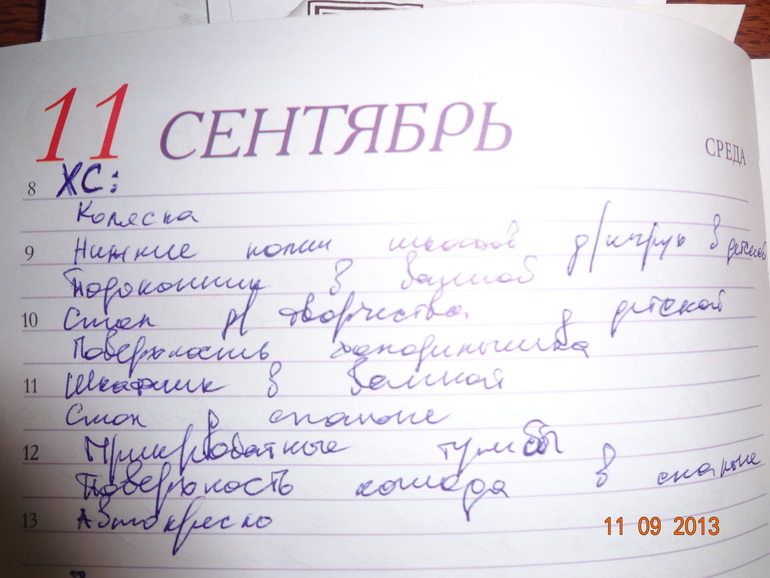 11 СЕНТЯБРЬ
СРЕДА
8 ХС:
Коляска
9 Нижние полки шкафов д/игруш в детской
Подоконник в ванной
10 Стол д/ творчества в детской
Поверхность холодильника
11 Шкафчик в ванной
Стол в спальне
12 Прикроватные тумбы
Поверхность комода в спальне
13 Автокресло
11 09 2013